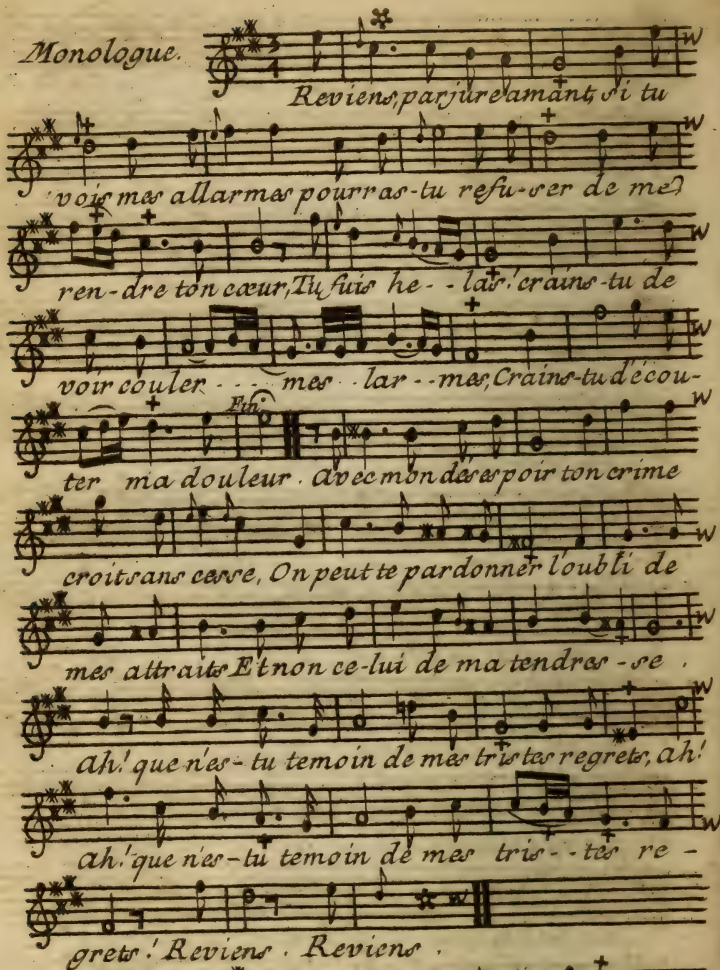 Monologue.
Reviens, parjure amant, si tu
vois mes allarmes pourras-tu refu-ser de me
ren-dre ton cœur, Tu fuis he - - las! crains-tu de
voir couler - - - - mes - - lar - - mes, Crains-tu d'écou-
Fin.
ter ma douleur. Avec mon desespoir ton crime
croit sans cesse, On peut te pardonner l'oubli de
mes attraits Et non ce-lui de ma tendres-se.
Ah! que n'es-tu temoin de mes tristes regrets, ah!
Ah! que n'es-tu temoin de mes tris - - tes re -
grets! Reviens. Reviens.